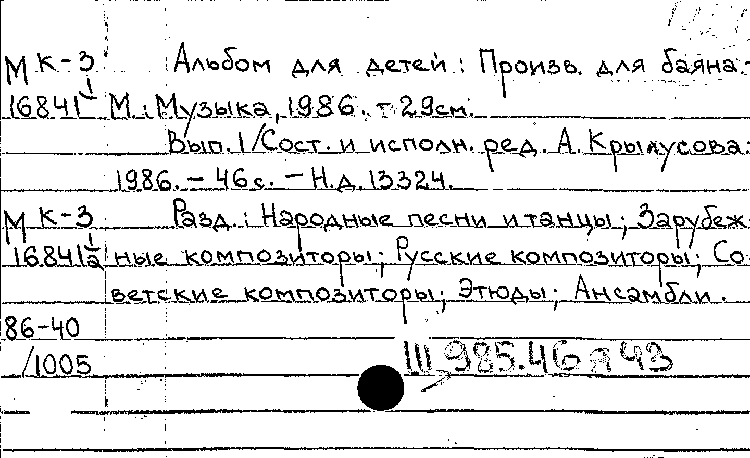 М К-3 Альбом для детей: Произв. для баяна.-
16841 1 М.: Музыка, 1986. - 29см.
Вып. 1/Сост. и исполн. ред. А. Крылусова.
1986. - 46 с. - Н.д. 13324.
М К-3 Разд.: Народные песни и танцы; Зарубеж-
16841 1/2 ные композиторы; Русские композиторы; Со-
ветские композиторы; Этюды; Ансамбли.
86-40
/1005 Ш 985.46 я 43